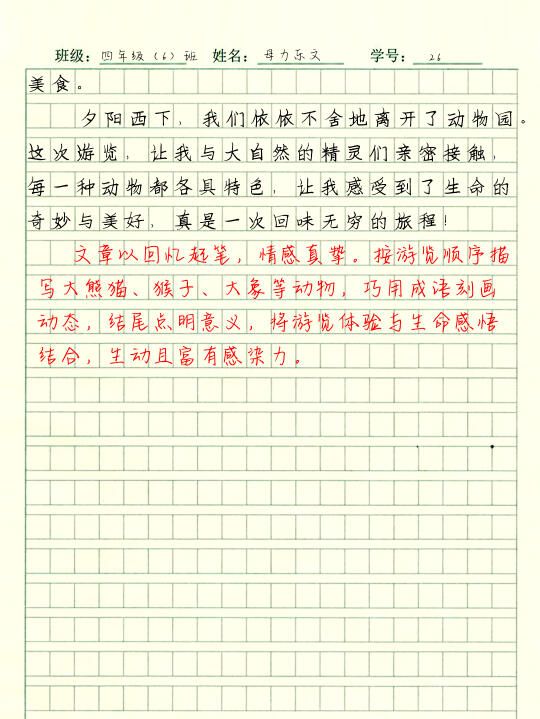 班级：四年级（6）班 姓名：母力乐文 学号：26
美食。
夕阳西下，我们依依不舍地离开了动物园。
这次游览，让我与大自然的精灵们亲密接触，
每一种动物都各具特色，让我感受到了生命的
奇妙与美好，真是一次回味无穷的旅程！
文章以回忆起笔，情感真挚。按游览顺序描
写大熊猫、猴子、大象等动物，巧用成语刻画
动态，结尾点明意义，将游览体验与生命感悟
结合，生动且富有感染力。